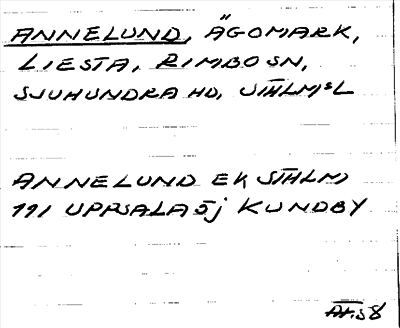 ANNELUND, ÄGOMARK,
LIESTA, RIMBO SN,
SJUHUNDRA HD, STHLMS L
ANNELUND EK STHLM
191 UPPSALA 5j KUNDBY